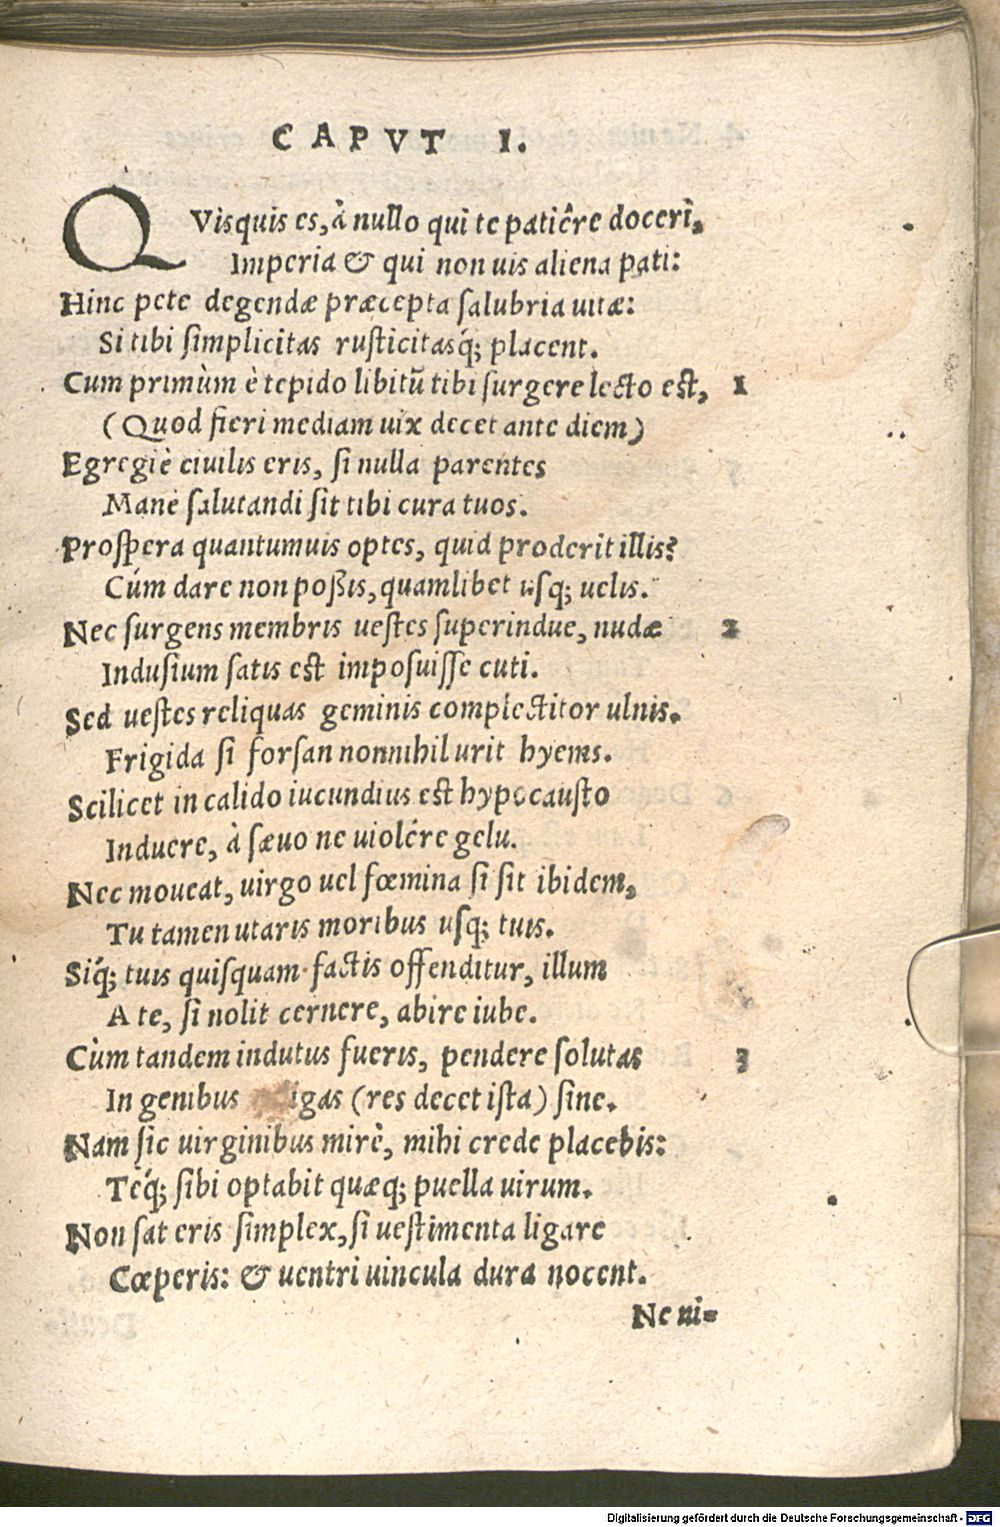 CAPVT I.
QVisquis es, à nullo quì te patiêre docerì,
Imperia & qui non uis aliena pati:
Hinc pete degendæ præcepta ſalubria uitæ:
Si tibi ſimplicitas ruſticitasq́; placent.
Cum primùm è tepido libitũ tibi ſurgere lecto eſt, 1
(Quod fieri mediam uix decet ante diem)
Egregiè ciuilis eris, ſi nulla parentes
Manè ſalutandi ſit tibi cura tuos.
Proſpera quantumuis optes, quid proderit illis?
Cúm dare non poßis, quamlibet uſq; uelis.
Nec ſurgens membris ueſtes ſuperindue, nudæ 2
Induſium ſatis eſt impoſuiſſe cuti.
Sed ueſtes reliquas geminis complectitor ulnis.
Frigida ſi forſan nonnihil urit hyems.
Scilicet in calido iucundius eſt hypocauſto
Induere, à ſæuo ne uiolére gelu.
Nec moueat, uirgo uel fœmina ſi ſit ibidem,
Tu tamen utaris moribus uſq; tuis.
Siq́; tuis quiſquam factis offenditur, illum
A te, ſi nolit cernere, abire iube.
Cùm tandem indutus fueris, pendere ſolutas 3
In genibus igas (res decet iſta) ſine.
Nam ſic uirginibus mirè, mihi crede placebis:
Teq́; ſibi optabit quæq; puella uirum.
Non ſat eris ſimplex, ſi ueſtimenta ligare
Cœperis: & uentri uincula dura nocent.
Ne ni=
Digitalisierung gefördert durch die Deutsche Forschungsgemeinschaft - DFG